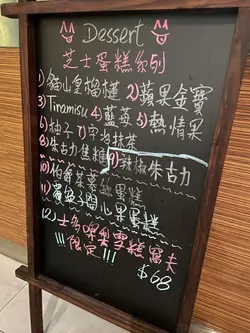 Dessert
芝士蛋糕系列
1) 貓山皇榴槤 2) 蘋果金寶
3) Tiramisu 4) 藍莓 5) 熱情果
6) 柚子 7) 宇治抹茶
8) 朱古力焦糖 9) 辣椒朱古力
10) 伯爵茶 蛋糕
11) 開心果蛋糕
12) 士多啤梨雪糕窩夫
!!! 限定 !!!
$68